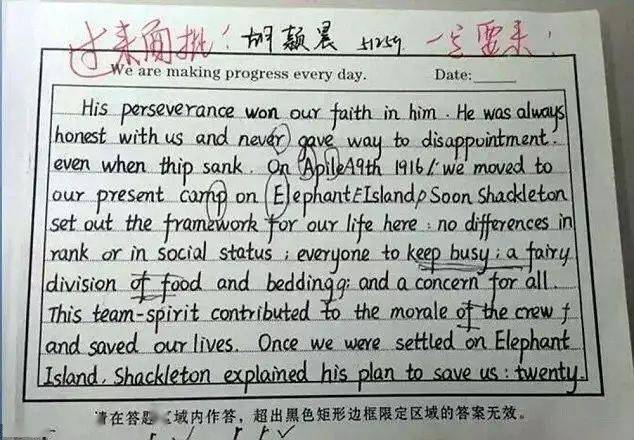 过来面批! 胡颖晨 51259 一定要来!
We are making progress every day. Date:
His perseverance won our faith in him. He was always
honest with us and never gave way to disappointment.
even when thip sank. On Apile A9th 1916/: we moved to
our present camp on Elephant E Island, Soon Shackleton
set out the framework for our life here : no differences in
rank or in social status ; everyone to keep busy ; a fairy
division of food and beddingg; and a concern for all.
This team-spirit contributed to the morale of the crew f
and saved our lives. Once we were settled on Elephant
Island, Shackleton explained his plan to save us : twenty
请在答题区域内作答，超出黑色矩形边框限定区域的答案无效。